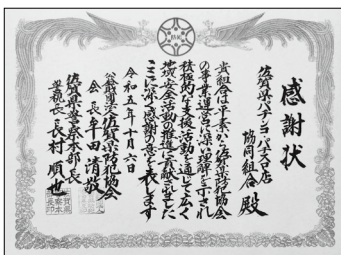 感謝状
佐賀県パチンコ・パチスロ店
協同組合 殿
貴組合は平素から佐賀県防犯協会
の事業運営に深い理解を示され
積極的な支援活動を通じて広く
地域安全活動の推進に貢献されました
ここに深く感謝の意を表します
令和五年十月六日
公益財団法人佐賀県防犯協会
会長 牟田清敬
佐賀県警察本部長
警視長 村順也